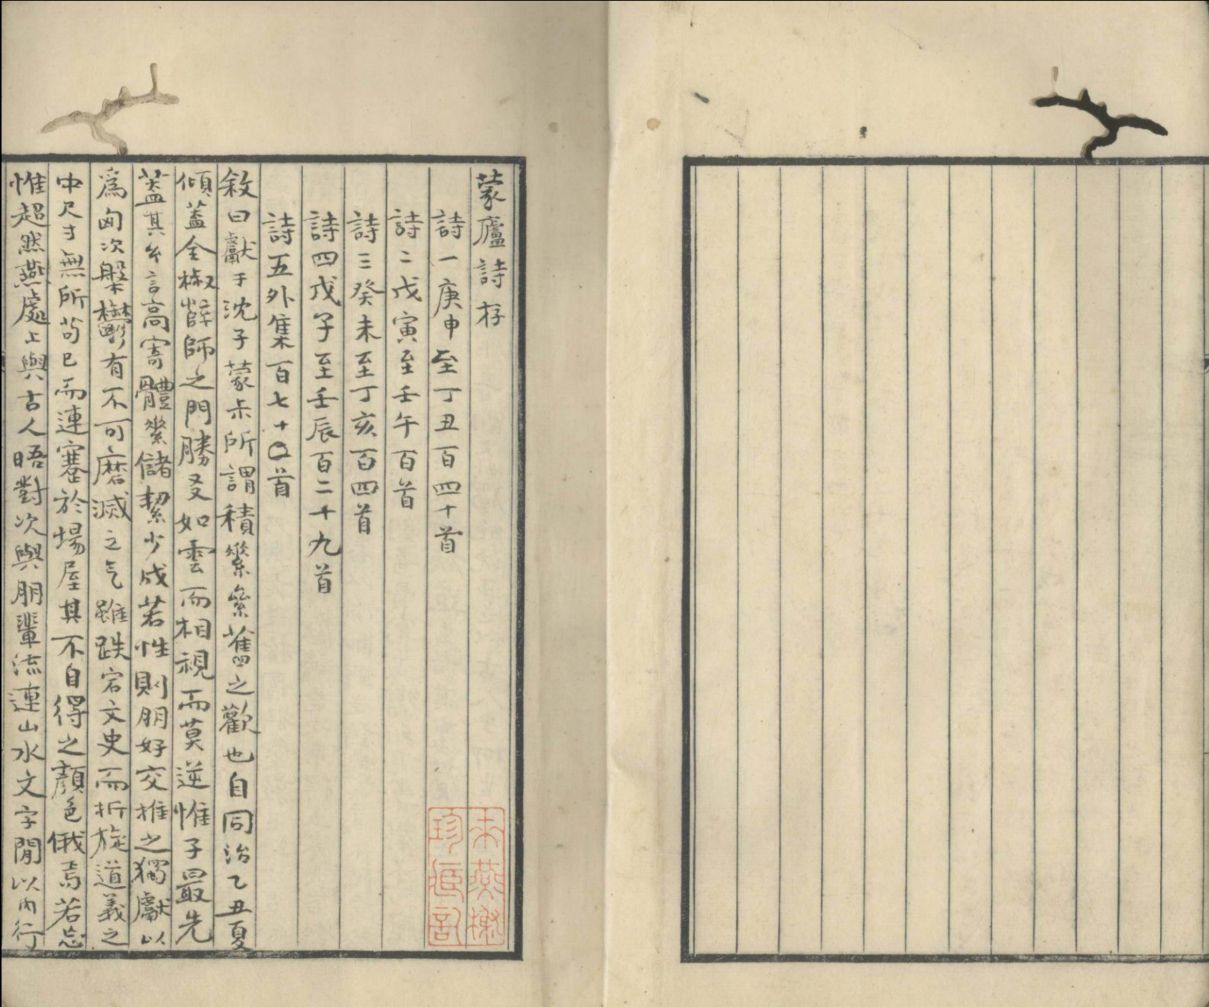 蒙廬詩存
詩一庚申至丁丑百四十首
詩二戊寅至壬午百首
詩三癸未至丁亥百四首
詩四戊子至壬辰百二十九首
詩五外集百七十〇首
敘曰獻于沈子蒙尗所謂積絫絫舊之歡也自同治乙丑夏
傾蓋全椒薛師之門勝友如雲而相視而莫逆惟子最先
蓋其〻言高寄體絫儲絜少成若性則朋好交推之獨獻以
為匈次槃鬱有不可磨滅之气雖跌宕文史而折旋道義之
中尺寸無所苟已而連蹇於場屋其不自得之顏色俄焉若忘
惟超然燕處上與古人晤對次與朋輩流連山水文字閒以內行